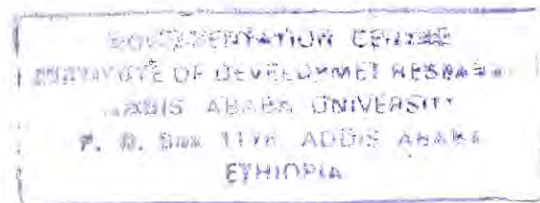 DOCUMENTATION CENTRE
INSTITUTE OF DEVELOPMET RESEAR
ADDIS ABABA UNIVERSITY
P. O. Box ADDIS ABABA
ETHIOPIA